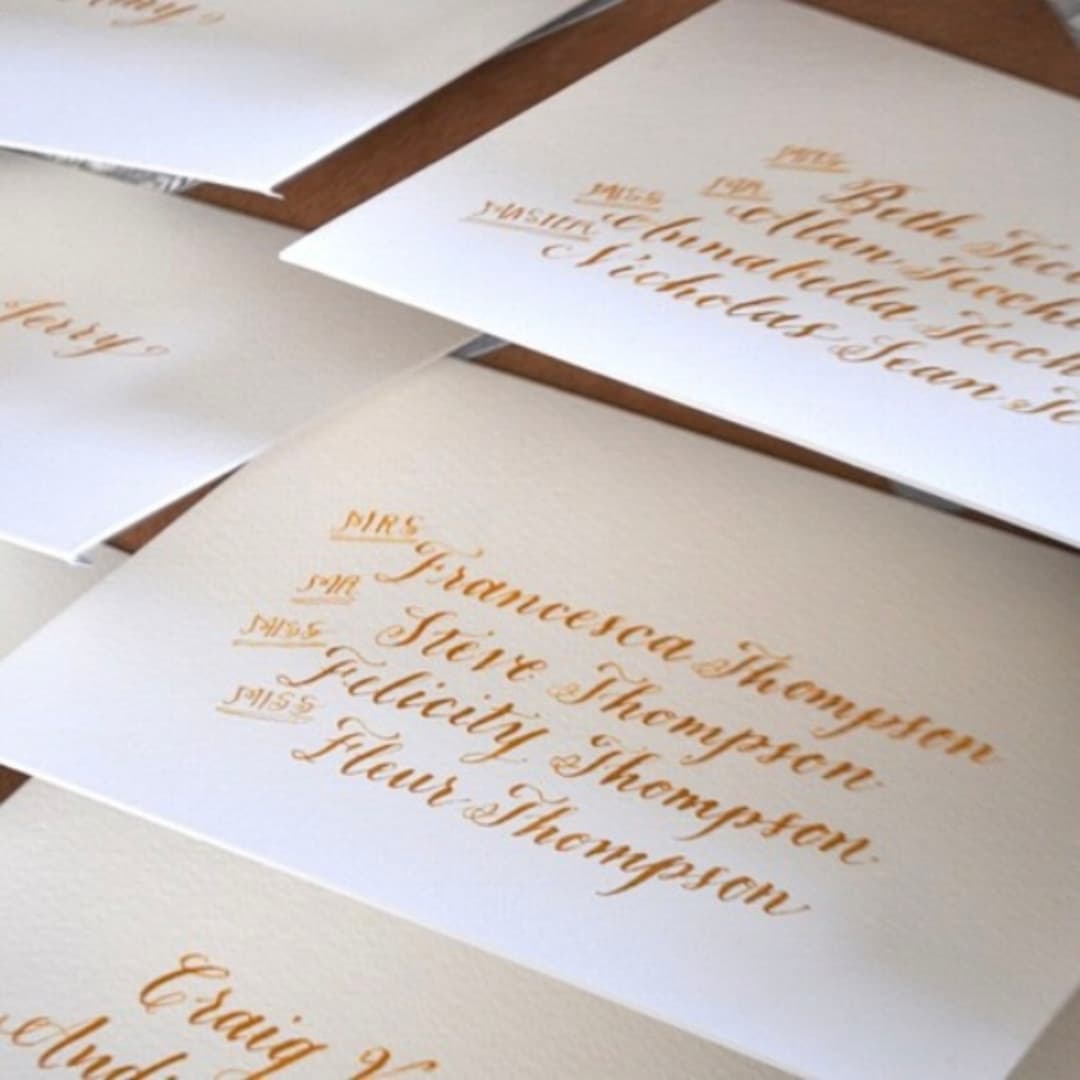 Jerry
MRS
Beth
MR
Alan
MISS
Annabella
MASTER
Nicholas Sean
MRS
Francesca Thompson
MR
Steve Thompson
MISS
Felicity Thompson
MISS
Fleur Thompson
Craig